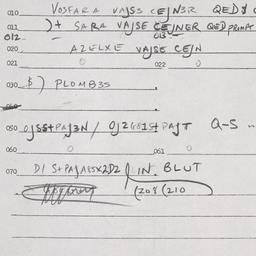 010 VOSFARA VAJSS CEJN3R QED$
011 )+ SARA VAJSE CEJNER QED PRIMAT
012 013
020 AZELXE VAJSE CEJN
021 0 022 0
030 $) PLOMB3S
050 OJSS+PAJ3N / OJ2GE1S+PAJT Q-S
060 0 061 0
070 DI S+PAJAESX2D2 IN BLUT
(208 (210